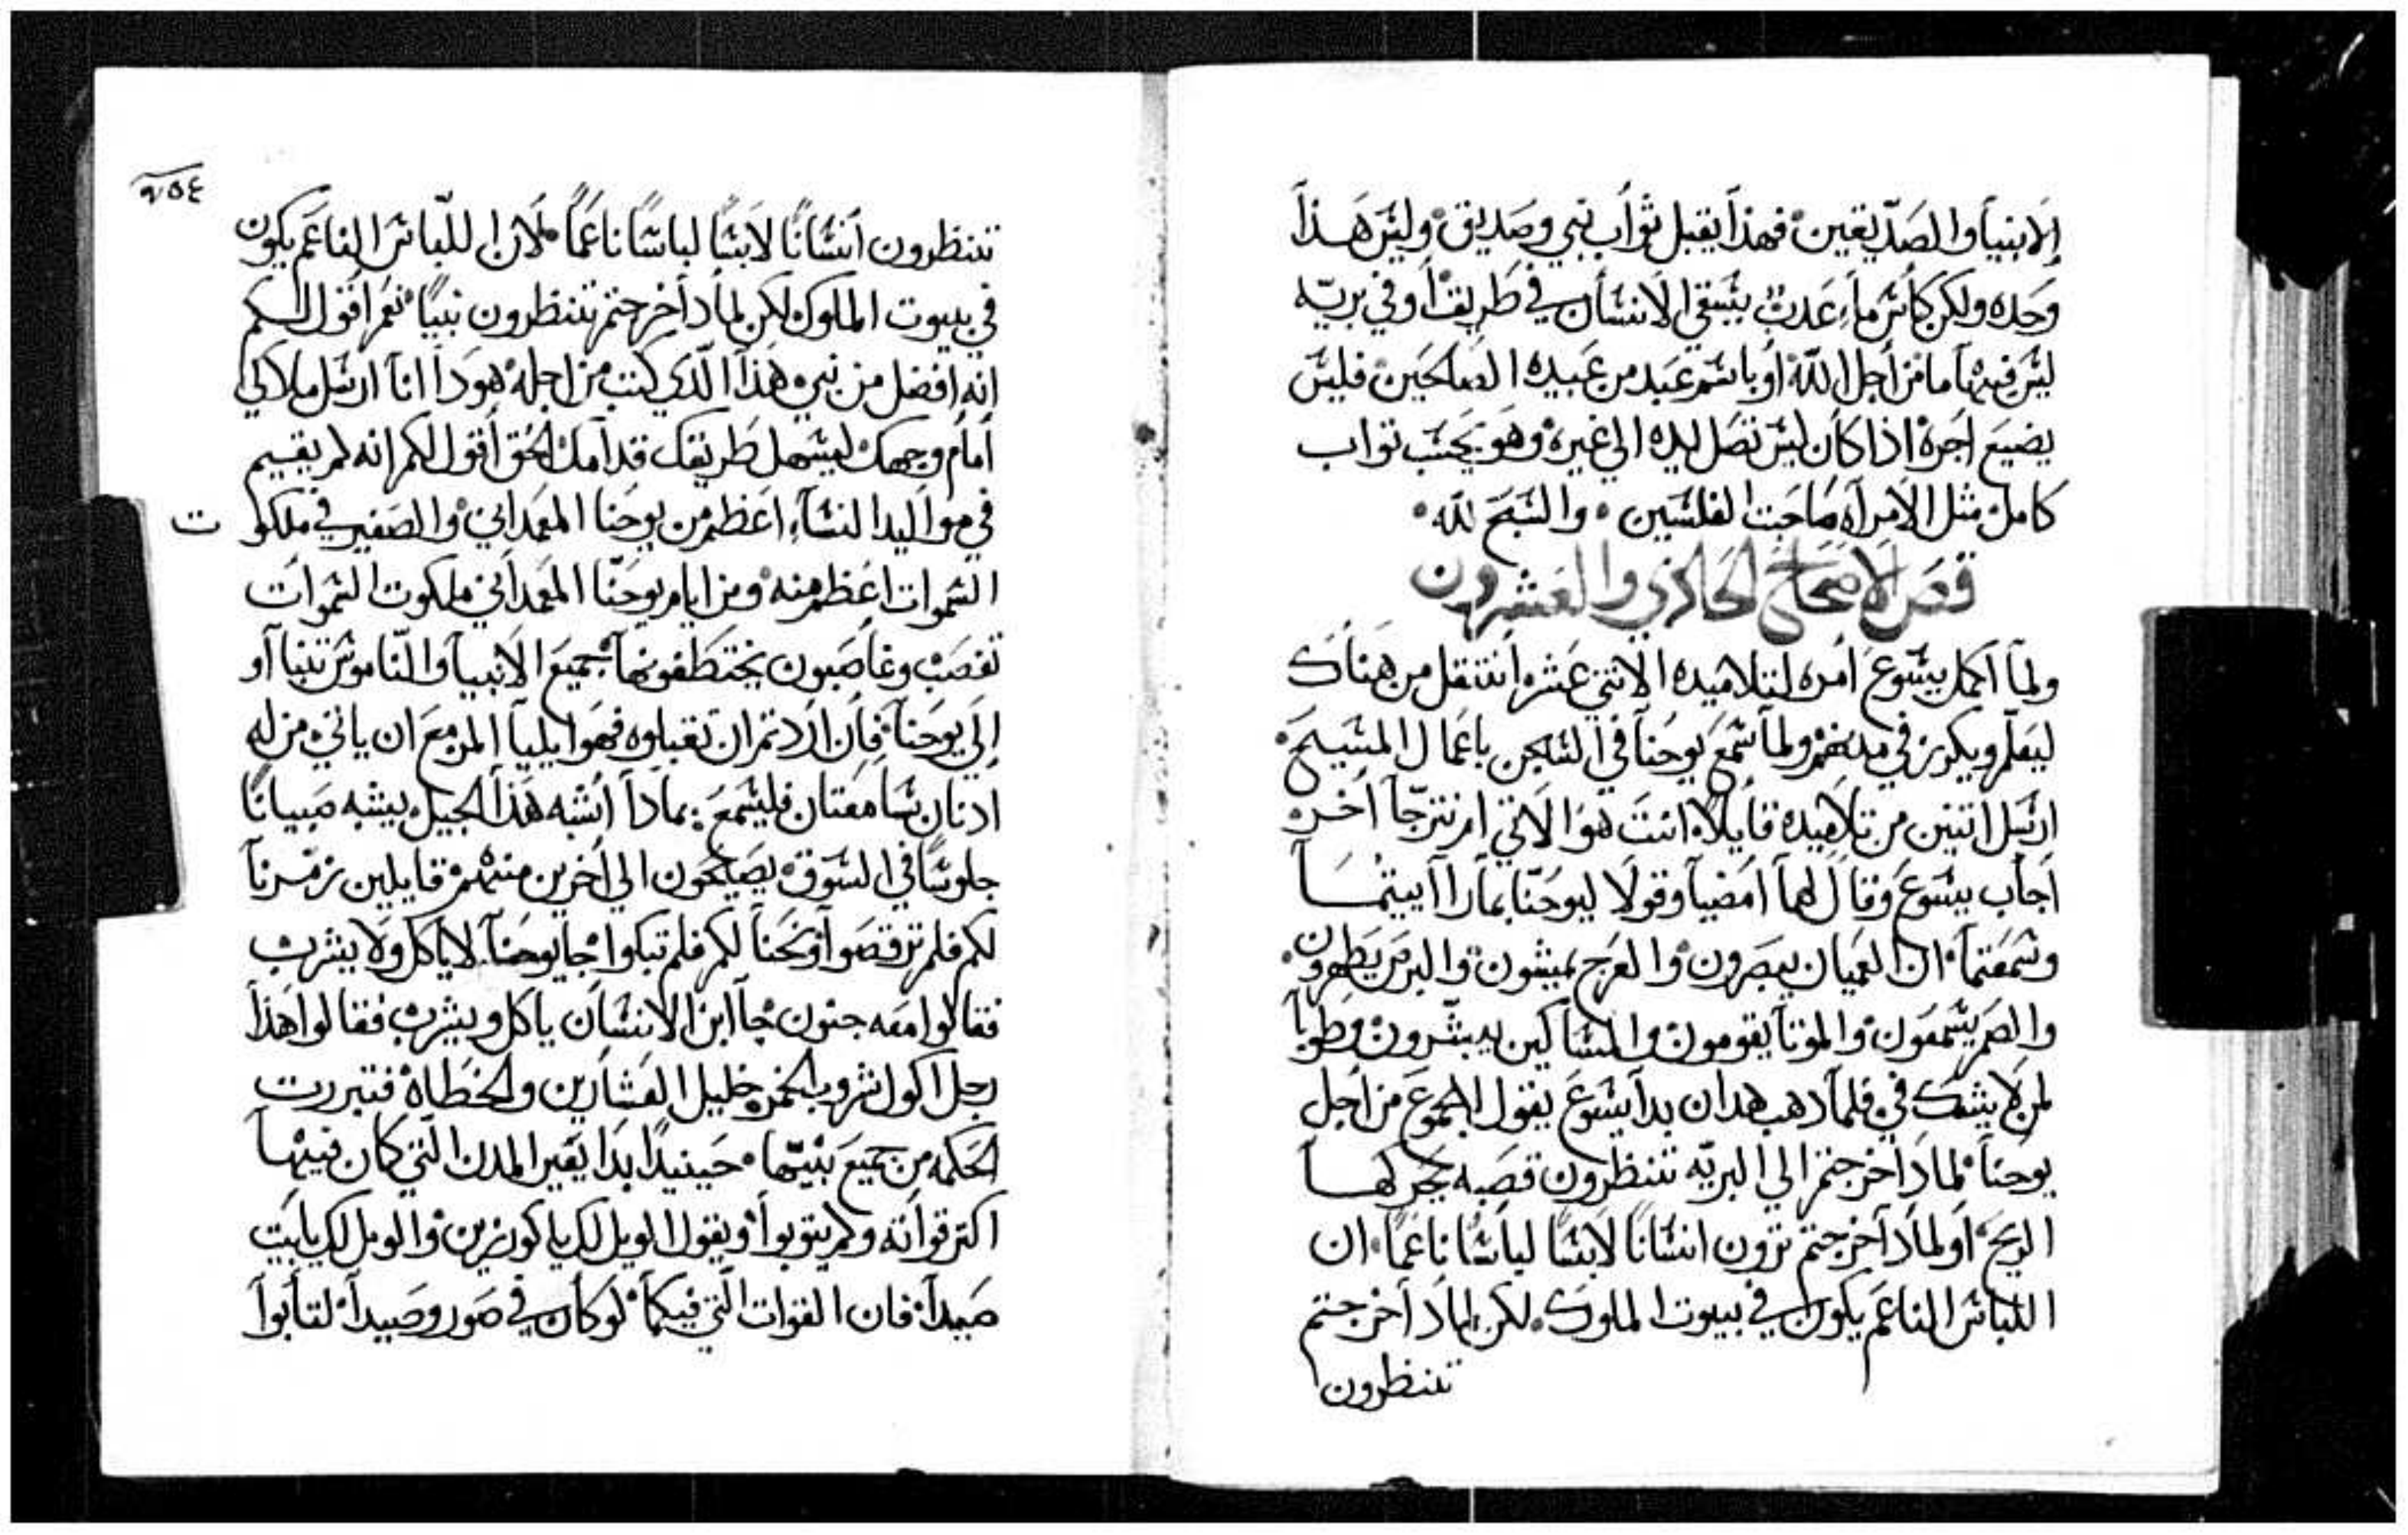 الانبيا والصديقين فهذا يقبل ثواب نبي وصديق وليس هذا
وحده ولكن كأس ماء عدب يسقي الانسان في طريقا وفي بريه
ليس فيها ما من أجل الله او باسم عبد من عبيده الصالحين فليس
يضيع اجره اذا كان ليس تصل ليده الي غيره وهو يحسب تواب
كامل مثل الامراه صاحبت الفلسين والسبح لله
قصر الاصحاح الحادي والعشرون
ولما اكمل يسوع امره لتلاميده الاتني عشر انتقل من هناك
ليعلم ويكرز في مدنهم ولما سمع يوحنا في السجن باعمال المسيح
ارسل اتنين من تلاميده قايلا انت هو الاتي ام نترجا اخر
اجاب يسوع وقال لهما امضيا وقولا ليوحنا بما راايتما
وسمعتما ان العميان يبصرون والعرج يمشون والبرص يطهرون
والصم يسمعون والموتا يقومون والمساكين يبشرون وطوبا
لمن لا يشك في فلما دهب هدان بدا يسوع يقول للجموع من اجل
يوحنا لمادا خرجتم الي البريه تنظرون قصبه يحركها
الريح او لمادا خرجتم ترون انسانا لابسا لباسا ناعما ان
اللباس الناعم يكون في بيوت الملوك لكن لمادا خرجتم
تنظرون
٢٥٤
تنظرون انسانا لابسا لباسا ناعما لان اللباس الناعم يكون
في بيوت الملوك لكن لمادا خرجتم تنظرون نبيا نعم اقول لكم
انه افضل من نبي هذا الدي كتب من اجله هودا انا ارسل ملاكي
امام وجهك ليسهل طريقك قدامك الحق اقول لكم انه لم يقيم
في مواليد النساء اعظم من يوحنا المعمداني والصغير في ملكوت
السموات اعظم منه ومن ايام يوحنا المعمداني ملكوت السموات
تغصب وغاصبون يختطفونها جميع الانبيا والناموس تنبا او
الي يوحنا فان اردتم ان تقبلوه فهو ايليا المزمع ان ياتي من له
ادنان سامعتان فليسمع بمادا اشبه هذا الجيل يشبه صبيانا
جلوسا في السوق يصيحون الي اخرين منهم قايلين زمرنا
لكم فلم ترقصوا ونحنا لكم فلم تبكوا جا يوحنا لا ياكل ولا يشرب
فقالوا معه جنون جا ابن الانسان ياكل ويشرب فقالوا هذا
رجل اكول شروب الخمر خليل العشارين والخطاه فتبررت
الحكمه من جميع بنيها حينيدا بدا يعير المدن التي كان فيها
اكتر قواته ولم يتوبوا ويقول الويل لك يا كورزين والويل لك يا بيت
صيدا فان القوات التي فيكما لو كان في صور وصيدا لتابوا